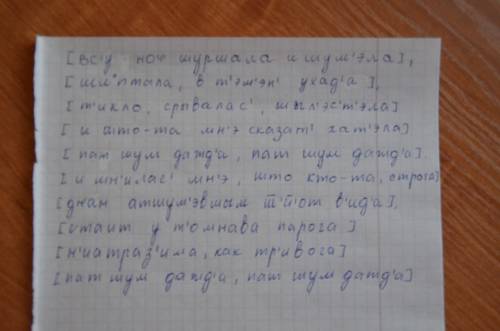 [вс'у ноч шуршала и шум'эла],
[шьл'птала, в т'эм'эн' ухад'а],
[т'икло, срывалас', шыл'эс'т'эла]
[и што-та мн'э сказат' хат'эла]
[пат шум дажд'а, пат шум дажд'а].
[и мн'илас' мн'э, што кто-та, строга]
[днан атшум'эвмым т'й'от в'ида],
[стаит у т'омнава парога]
[н'иатраз'има, как тр'ивога]
[пат шум дажд'а, пат шум дажд'а]